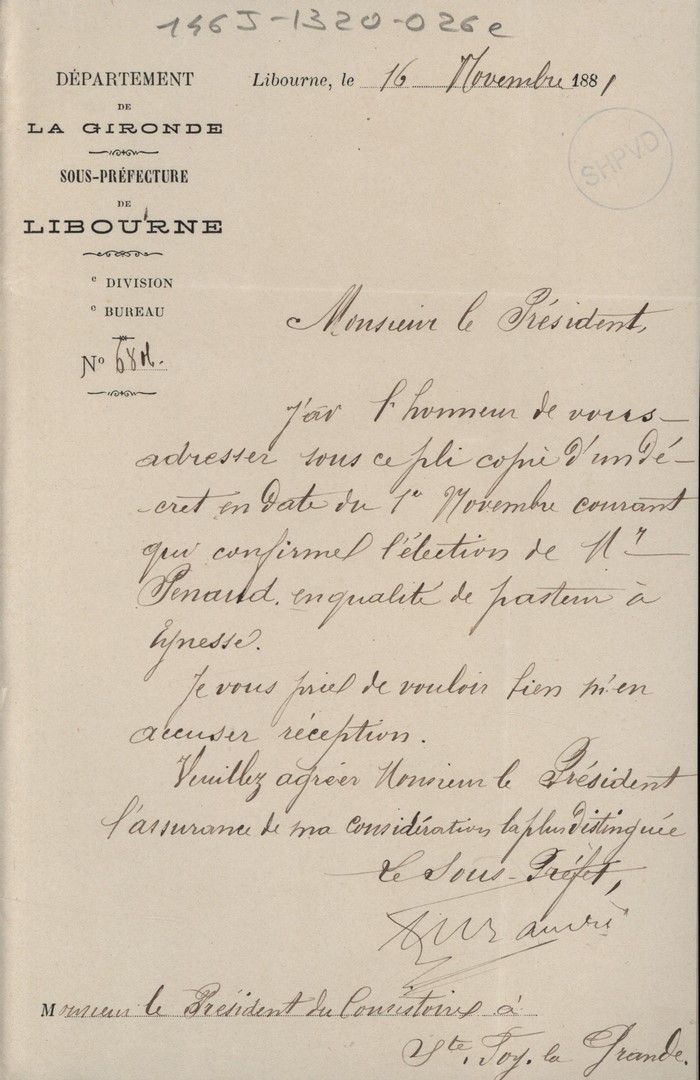 146J-1320-026e
DÉPARTEMENT
DE
LA GIRONDE
SOUS-PRÉFECTURE
DE
LIBOURNE
e DIVISION
e BUREAU
No
Libourne, le 16 Novembre 1881
SHPVD
Monsieur le Président,
J'ai l'honneur de vous
adresser sous ce pli copie d'un dé-
-cret en date du 1er Novembre courant
qui confirme l'élection de Mr
Penaud, en qualité de pasteur à
Eynesse.
Je vous prie de vouloir bien m'en
accuser réception.
Veuillez agréer Monsieur le Président
l'assurance de ma considération la plus distinguée
Le Sous-Préfet,
Monsieur le Président du Consistoire à
Ste. Foy. la Grande.